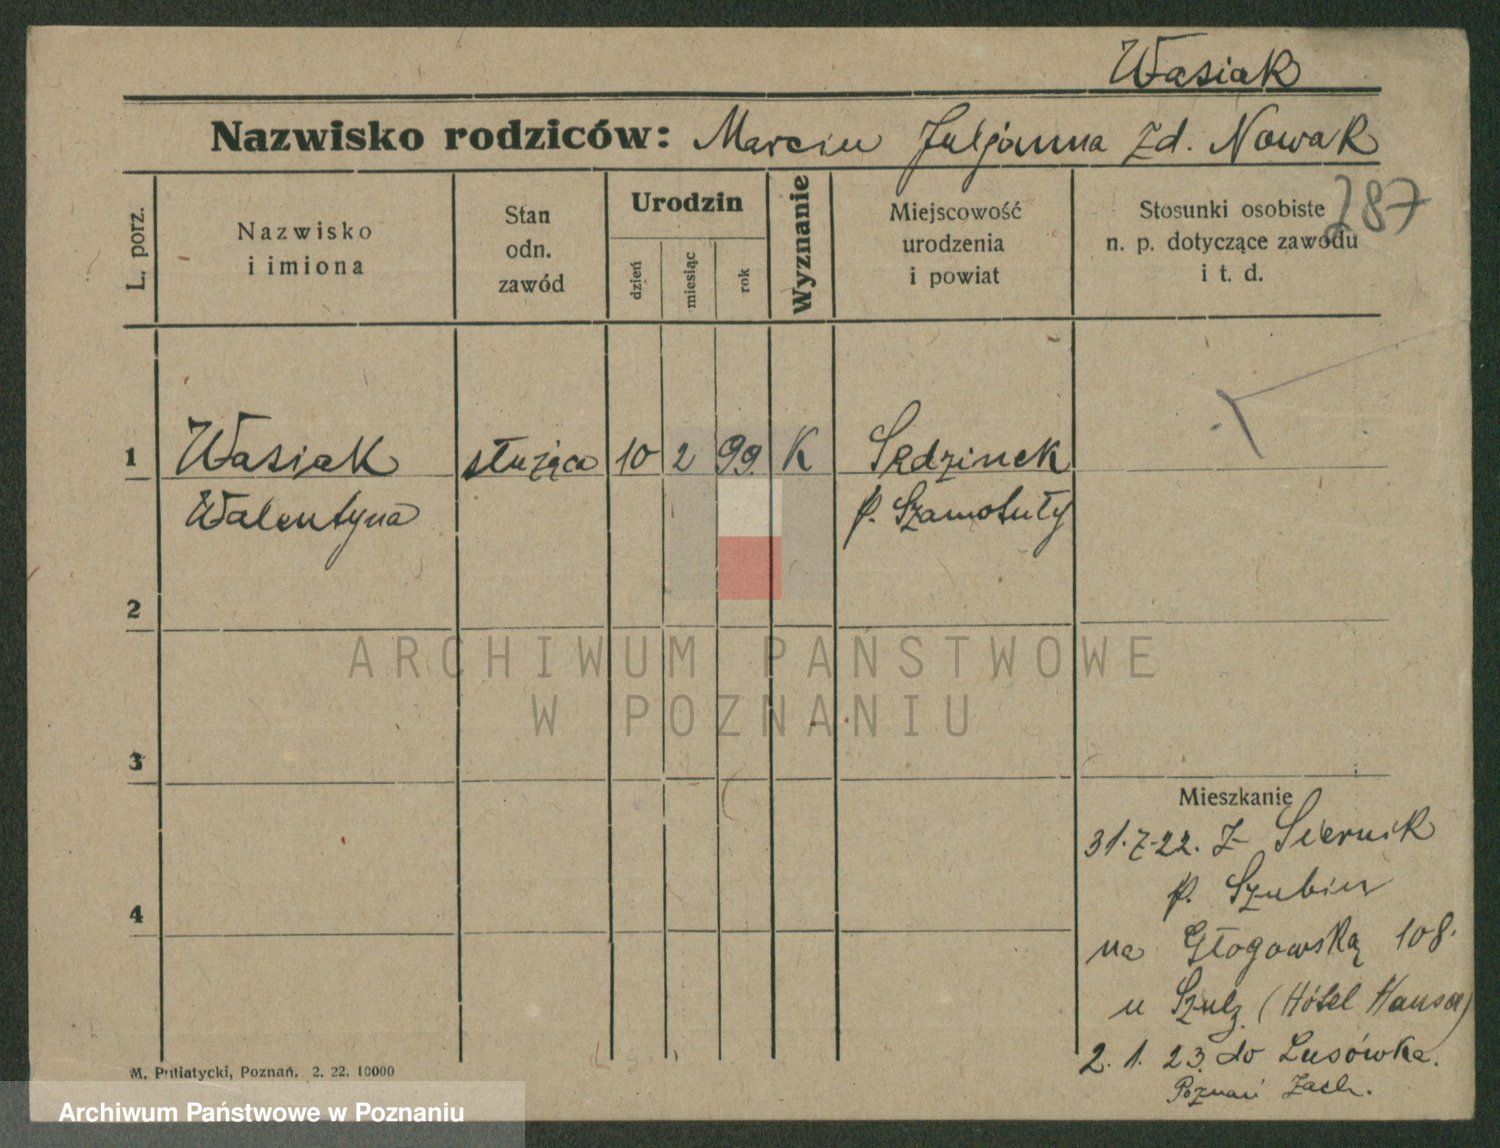 Wasiak
Nazwisko rodziców: Marcin Juljanna Zd. Nowak
287
L. porz.
Nazwisko
i imiona
Stan
odn.
zawód
Urodzin
dzień
miesiąc
rok
Wyznanie
Miejscowość
urodzenia
i powiat
Stosunki osobiste
n. p. dotyczące zawodu
i t. d.
1 Wasiak służąca 10 2 99. K Sędzinek
Walentyna p. Szamotuły
2
3
4
Mieszkanie
31.7.22. Z Siernik
p. Szubin
na Głogowską 108.
u Szulz (Hôtel Hansa)
2. 1. 23. do Lusówka.
Poznań Zach.
M. Putiatycki, Poznań. 2. 22. 10000
ARCHIWUM PAŃSTWOWE
W POZNANIU
Archiwum Państwowe w Poznaniu